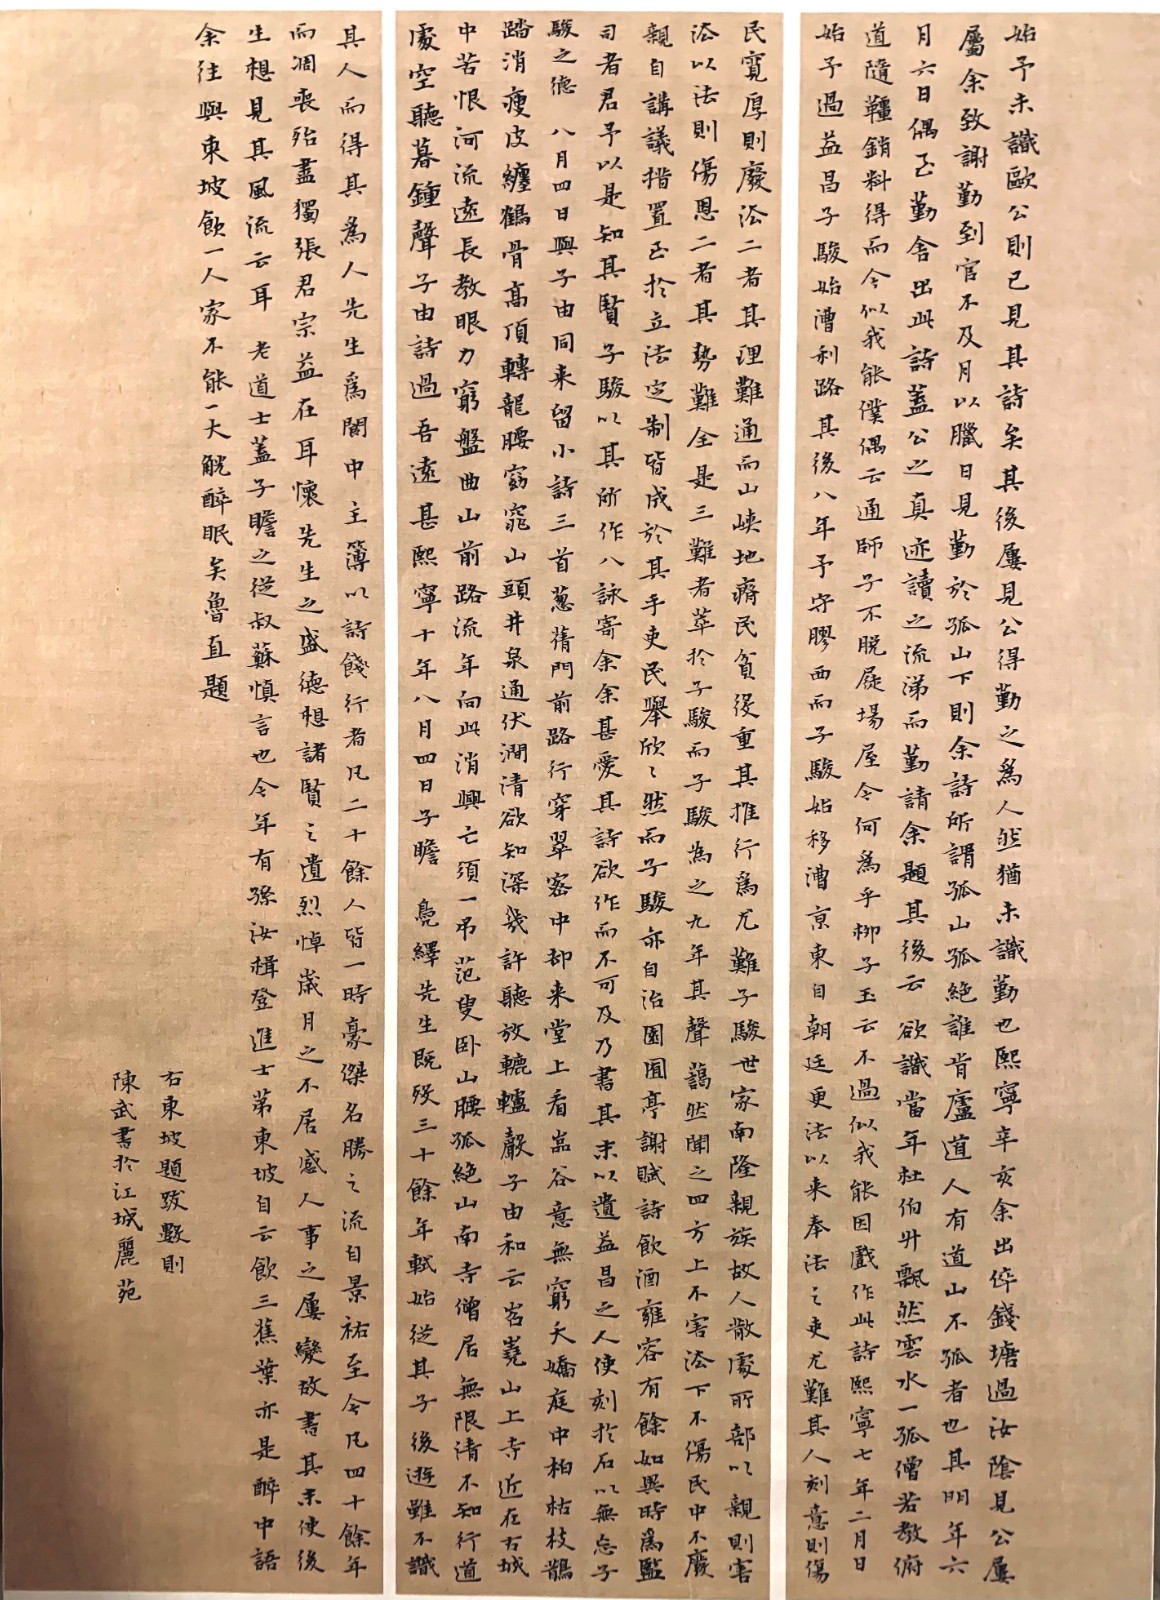 始予未識歐公則已見其詩矣其後屢見公得勤之為人然猶未識勤也熙寧辛亥余出倅錢塘過汝陰見公屢
屬余致謝勤到官不及月以臘日見勤於孤山下則余詩所謂孤山孤絕誰肯廬道人有道山不孤者也其明年六
月六日偶至勤舍出此詩蓋公之真迹讀之流涕而勤請余題其後云 欲識當年杜伯升飄然雲水一孤僧若教俯
道隨韁鎖料得而今似我能僕偶云通師子不脫屣場屋今何為乎柳子玉云不過似我能因戲作此詩熙寧七年二月日
始予過益昌子駿始漕利路其後八年予守膠西而子駿始移漕京東自朝廷更法以來奉法之吏尤難其人刻意則傷
民寬厚則廢法二者其理難通而山峽地瘠民貧役重其推行為尤難子駿世家南隆親族故人散處所部以親則害
法以法則傷恩二者其勢難全是三難者萃於子駿而子駿為之九年其聲藹然聞之四方上不害法下不傷民中不廢
親自講議措置至於立法定制皆成於其手吏民舉欣欣然而子駿亦自治園囿亭謝賦詩飲酒雍容有餘如異時為監
司者君予以是知其賢子駿以其所作八詠寄余余甚愛其詩欲作而不可及乃書其末以遺益昌之人使刻於石以無忘子
駿之德 八月四日與子由同來留小詩三首葱蒨門前路行穿翠密中却来堂上看嵓谷意無窮夭嬌庭中柏枯枝鵲
踏消瘦皮纏鶴骨高頂轉龍腰窈窕山頭井泉通伏澗清欲知深幾許聽放轆轤聲子由和云岧嶤山上寺近在古城
中苦恨河流遠長教眼力窮盤曲山前路流年向此消興亡須一弔范叟卧山腰孤絕山南寺僧居無限清不知行道
處空聽暮鍾聲子由詩過吾遠甚熙寧十年八月四日子瞻 鳧繹先生既歿三十餘年軾始從其子後遊雖不識
其人而得其為人先生為閬中主簿以詩餞行者凡二十餘人皆一時豪傑名勝之流自景祐至今凡四十餘年
而凋喪殆盡獨張君宗益在耳懷先生之盛德想諸賢之遺烈悼歲月之不居感人事之屢變故書其末使後
生想見其風流云耳 老道士蓋子瞻之從叔蘇慎言也今年有孫汝楫登進士第東坡自云飲三蕉葉亦是醉中語
余往與東坡飲一人家不能一大觥醉眠矣魯直題
右東坡題跋數則
陳武書於江城麗苑